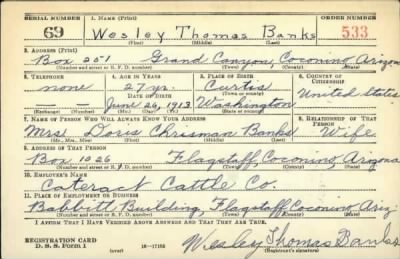 SERIAL NUMBER 1. NAME (Print) ORDER NUMBER
69 Wesley Thomas Banks 533
(First) (Middle) (Last)
2. ADDRESS (Print)
Box 251 Grand Canyon, Coconino Arizona
(Number and street or R. F. D. number) (Town) (County) (State)
3. TELEPHONE 4. AGE IN YEARS 5. PLACE OF BIRTH 6. COUNTRY OF CITIZENSHIP
none 27 yr. Curtis United States
DATE OF BIRTH (Town or county)
June 26, 1913 Washington
(Exchange) (Number) (Mo.) (Day) (Yr.) (State or country)
7. NAME OF PERSON WHO WILL ALWAYS KNOW YOUR ADDRESS 8. RELATIONSHIP OF THAT PERSON
Mrs. Doris Chrisman Banks Wife
(Mr., Mrs., Miss) (First) (Middle) (Last)
9. ADDRESS OF THAT PERSON
Box 1026 Flagstaff, Coconino, Arizona
(Number and street or R. F. D. number) (Town) (County) (State)
10. EMPLOYER'S NAME
Cateract Cattle Co.
11. PLACE OF EMPLOYMENT OR BUSINESS
Babbitt Building, Flagstaff Coconino Ariz.
(Number and street or R. F. D. number) (Town) (County) (State)
I AFFIRM THAT I HAVE VERIFIED ABOVE ANSWERS AND THAT THEY ARE TRUE.
REGISTRATION CARD
D. S. S. Form 1 (over) 16-17105 Wesley Thomas Banks
(Registrant's signature)